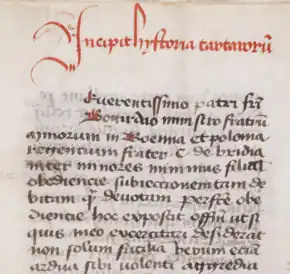 Incipit hystoria tartarorũ
Reverentissimo patri frī
Boguslao ministro fratrũ
minorum in Boemia et polonia
degentium frater C. de bridia
inter minores minimus filial
obediencie subiectionem tam de
bitam qͣ devotam perfcte obe
diencie hoc exposcit offīm ut si
quis meo exercitari desiderat
non solum facilia verum eciā
ardua sibi volenti aggredia